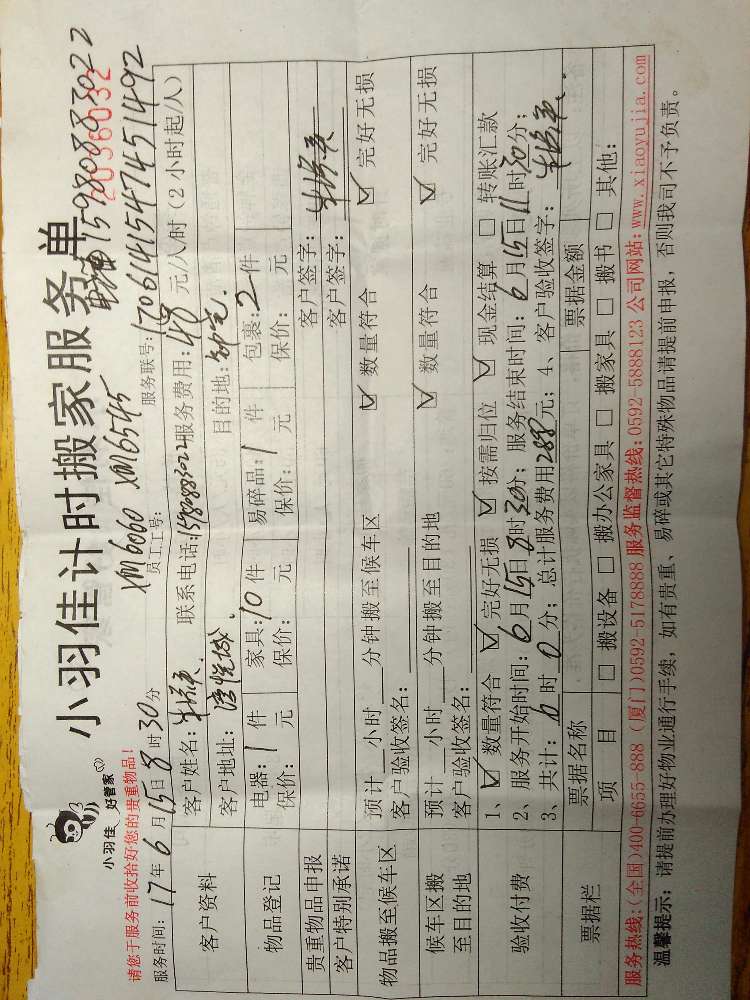 小羽佳 好管家
小羽佳计时搬家服务单
2036032
15980883022
请您于服务前收拾好您的贵重物品!
XM6060 XM6545
服务时间: 17年6月15日8时30分 员工工号: 服务联号: 170614154745 1492
客户资料
客户姓名: 联系电话: 15980883022 服务费用: 48 元/人/时 (2小时起/人)
客户地址: 目的地:
物品登记
电器: 1件 家具: 10件 易碎品: 1件 包裹: 2件
保价: 元 保价: 元 保价: 元 保价: 元
贵重物品申报 客户签字:
客户特别承诺 客户签字:
物品搬至候车区
预计__小时__分钟搬至候车区 ☑ 数量符合 ☑ 完好无损
客户验收签名:
候车区搬至目的地
预计__小时__分钟搬至目的地 ☑ 数量符合 ☑ 完好无损
客户验收签名:
验收付费
1、☑ 数量符合 ☑ 完好无损 ☑ 按需归位 ☑ 现金结算 □ 转账汇款
2、服务开始时间: 6月15日8时30分; 服务结束时间: 6月15日11时30分;
3、共计: 6时0分; 总计服务费用288元; 4、客户验收签字:
票据栏
票据名称 票据金额
项目 □ 搬设备 □ 搬办公家具 □ 搬家具 □ 搬书 □ 其他:
服务热线:(全国)400-6655-888 (厦门)0592-5178888 服务监督热线:0592-5888123 公司网站:www.xiaoyujia.com
温馨提示: 请提前办理好物业通行手续, 如有贵重、易碎或其它特殊物品请提前申报, 否则我司不予负责。